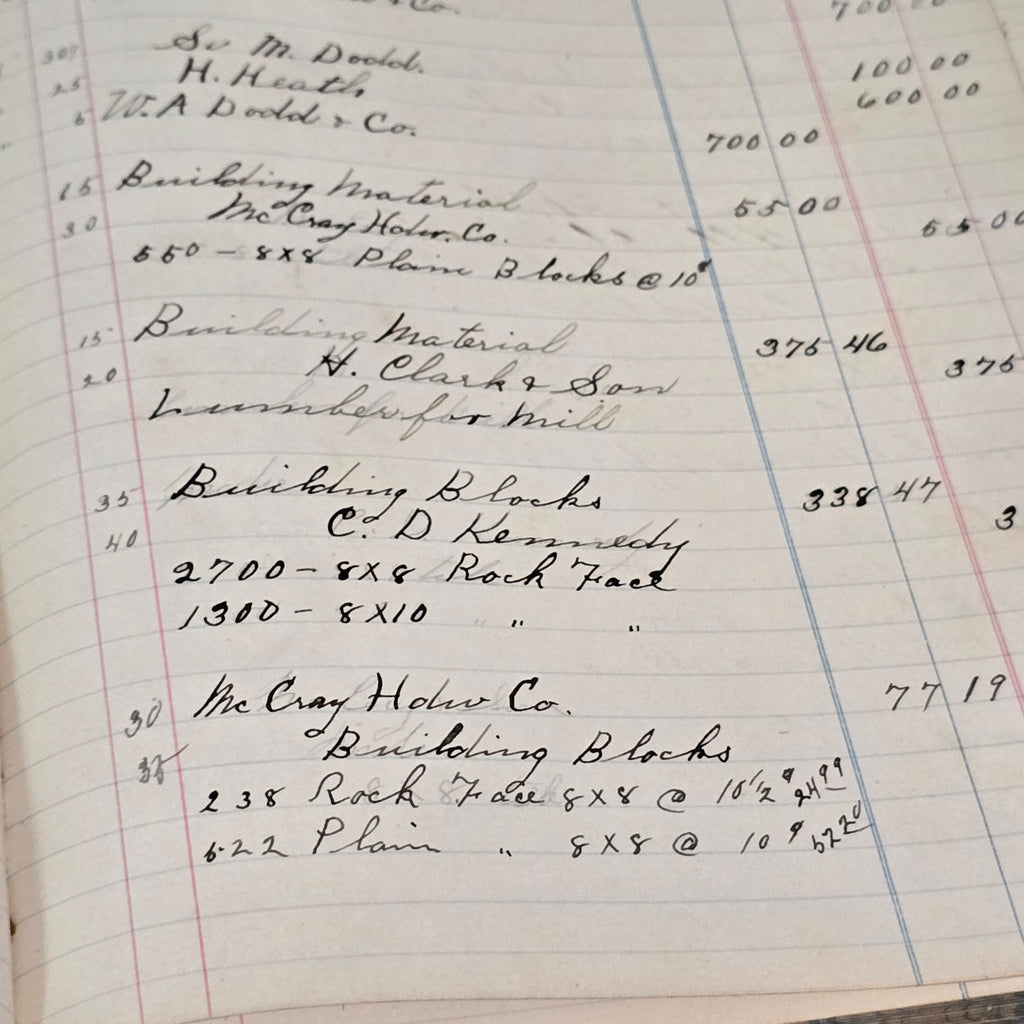 & Co. 700 00
M. Dodd. 100 00
25 H. Heath 600 00
5 W. A Dodd & Co. 700 00
15 Building Material 55 00
30 Mc Cray Hdw. Co. 55 00
550 - 8x8 Plain Blocks @ 10¢
15 Building Material 375 46
20 H. Clark & Son 375
Lumber for Mill
35 Building Blocks 338 47
40 C. D Kennedy 3
2700 - 8x8 Rock Face
1300 - 8x10 " "
30 Mc Cray Hdw Co. 77 19
35 Building Blocks
238 Rock Face 8x8 @ 10 1/2 ¢ 24 99
522 Plain " 8x8 @ 10 ¢ 52 20